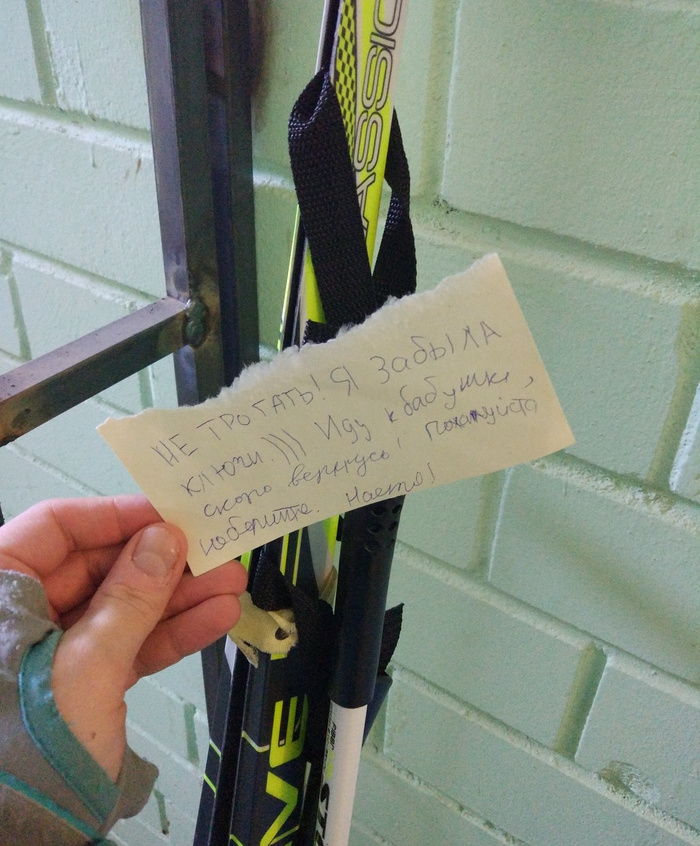 ASSIC
НЕ ТРОГАТЬ! Я ЗАБЫЛА
ключи.))) Иду к бабушке,
скоро вернусь! Пожалуйста
Настя!
INE